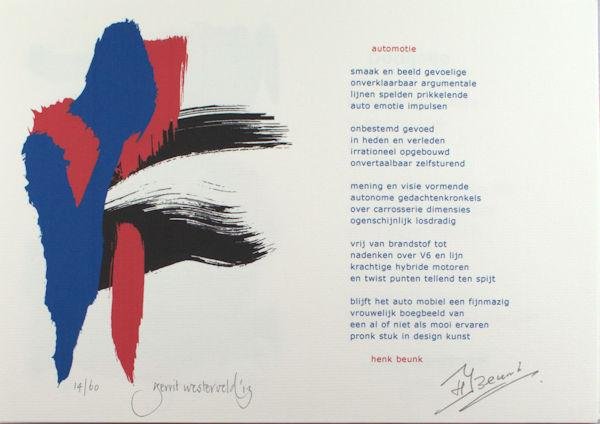 automotie
smaak en beeld gevoelige
onverklaarbaar argumentale
lijnen spelden prikkelende
auto emotie impulsen
onbestemd gevoed
in heden en verleden
irrationeel opgebouwd
onvertaalbaar zelfsturend
mening en visie vormende
autonome gedachtenkronkels
over carrosserie dimensies
ogenschijnlijk losdradig
vrij van brandstof tot
nadenken over V6 en lijn
krachtige hybride motoren
en twist punten tellend ten spijt
blijft het auto mobiel een fijnmazig
vrouwelijk boegbeeld van
een al of niet als mooi ervaren
pronk stuk in design kunst
henk beunk
14/60 gerrit westerveld '13
HJBeunk